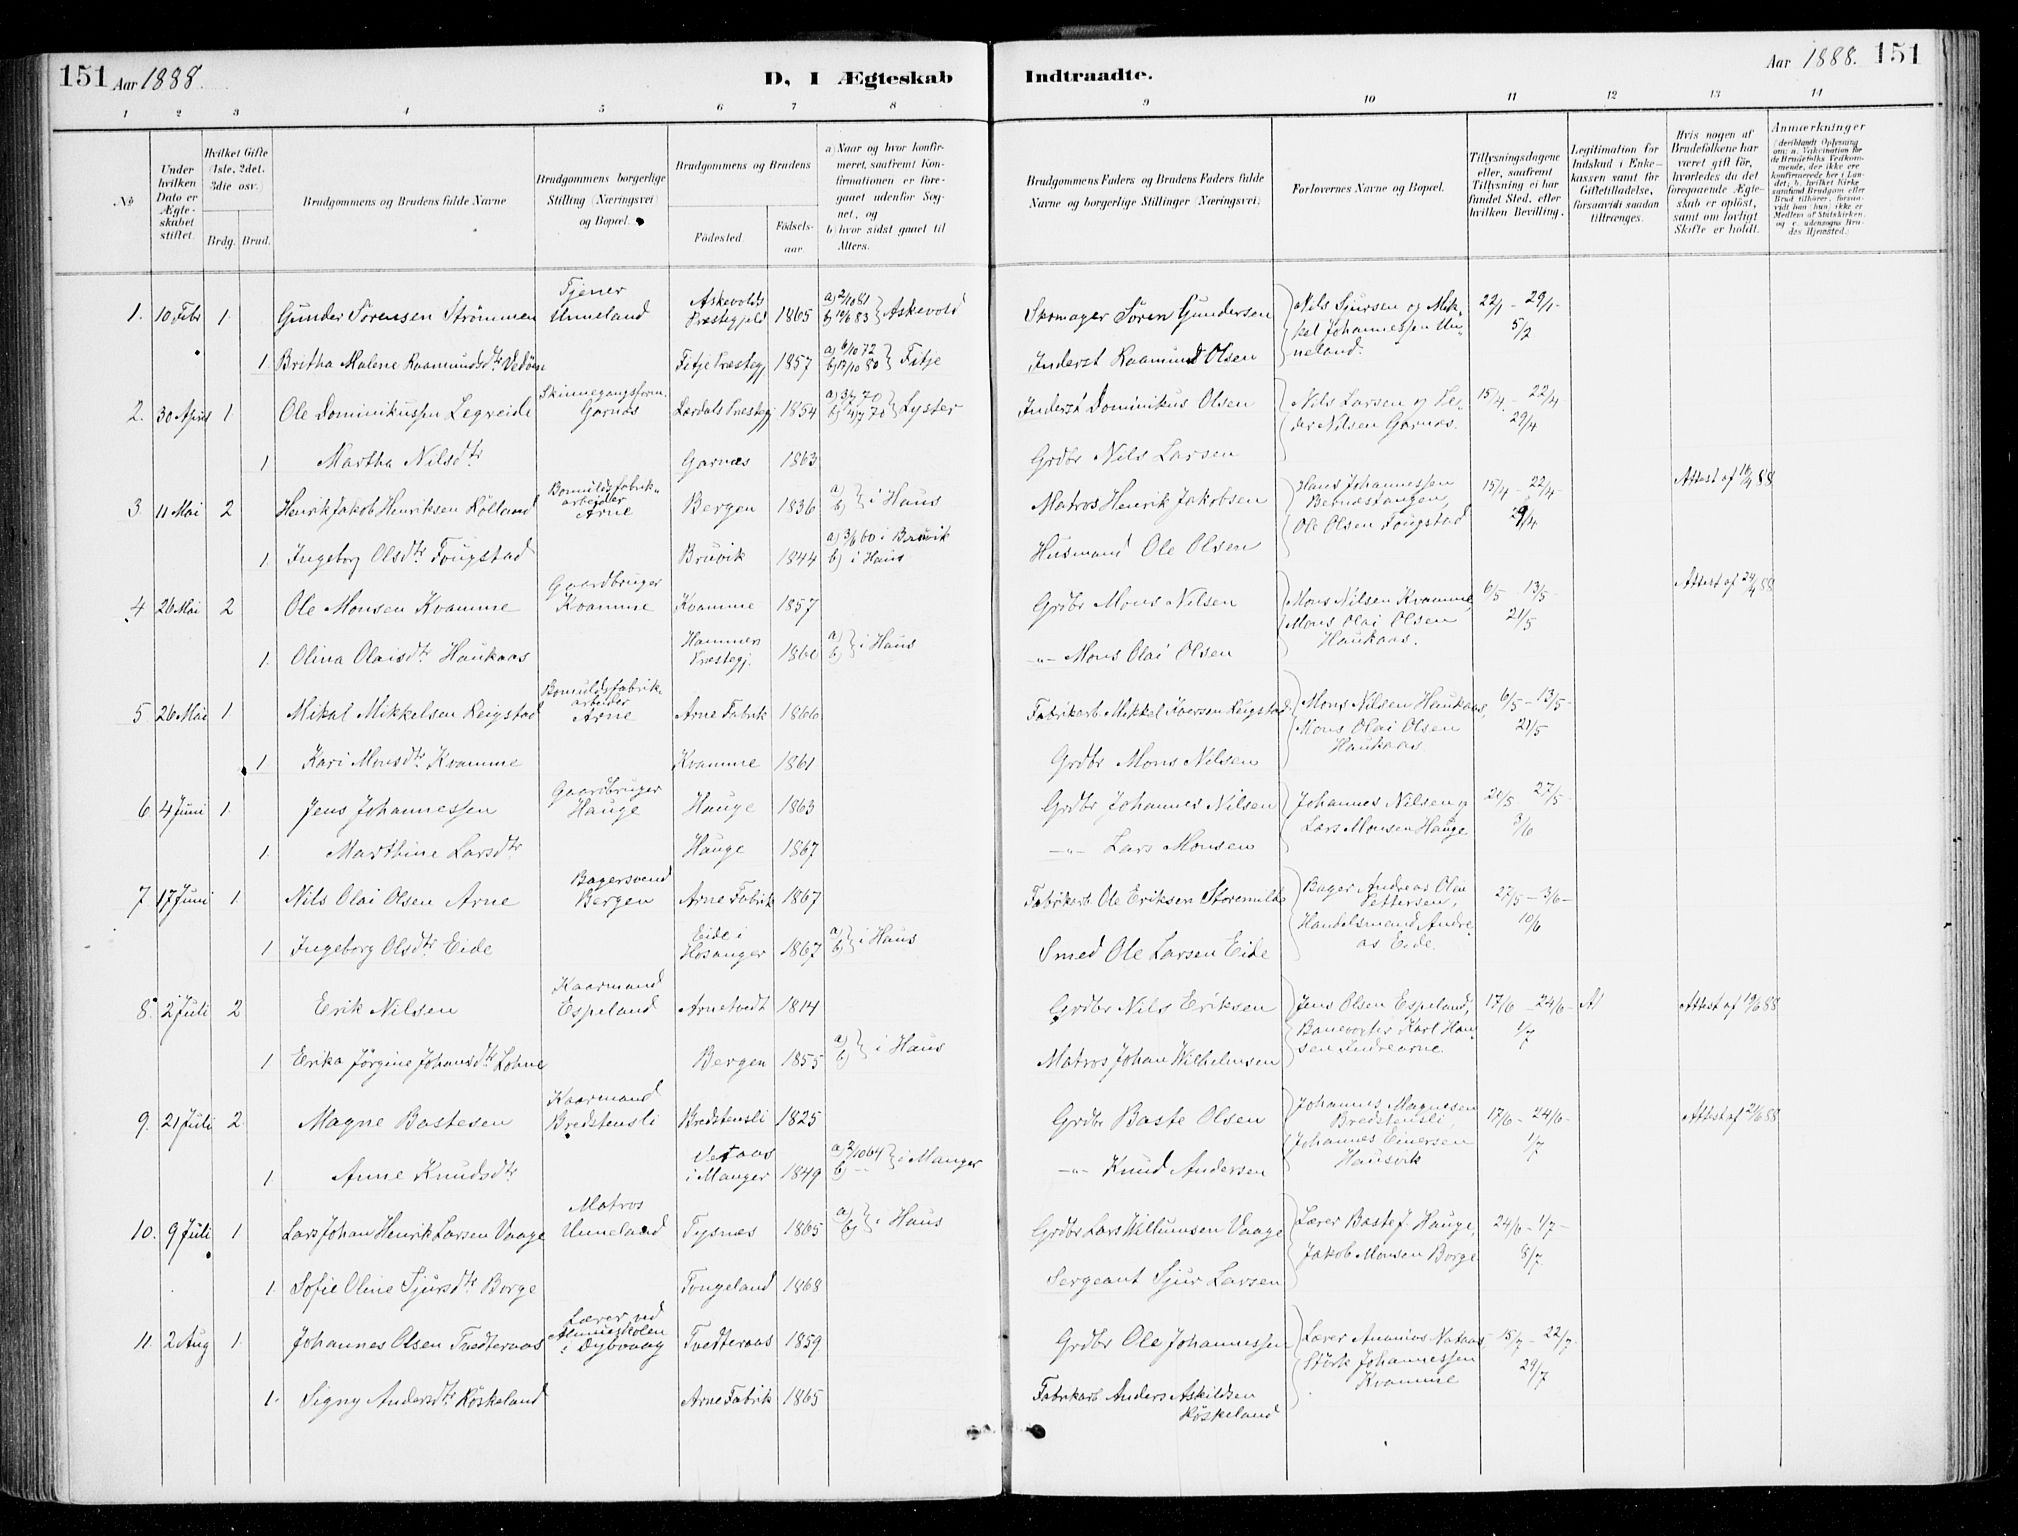 151 Aar 1888. D, I Ægteskab Indtraadte. Aar 1888. 151
1 2 3 4 5 6 7 8 9 10 11 12 13 14
No
Under hvilken Dato er Ægteskabet stiftet.
Hvilket Gifte (1ste, 2det, 3die osv.)
Brdg. Brud.
Brudgommens og Brudens fulde Navne
Brudgommens borgerlige Stilling (Næringsvei) og Bopæl.
Brudgommens og Brudens
Fødested. Fødselsaar.
a) Naar og hvor konfirmeret, saafremt Konfirmationen er foregaaet udenfor Sognet, og
b) hvor sidst gaaet til Alters.
Brudgommens Faders og Brudens Faders fulde Navne og borgerlige Stillinger (Næringsvei).
Forlovernes Navne og Bopæl.
Tillysningsdagene eller, saafremt Tillysning ei har fundet Sted, efter hvilken Bevilling.
Legitimation for Indskud i Enkekassen samt for Giftetilladelse, forsaavidt saadan tiltrænges.
Hvis nogen af Brudefolkene har været gift før, hvorledes da det foregaaende Ægteskab er opløst, samt om lovligt Skifte er holdt.
Anmærkninger (deriblandt Oplysning om: a. Vakcination for de Brudefolks Vedkommende, der ikke ere konfirmerede her i Landet; b. hvilket Kirkesamfund Brudgom eller Brud tilhører, forsaavidt han (hun) ikke er Medlem af Statskirken, og c. udensogns Brudes Hjemsted.)
1. 10 Febr 1. Gunder Sørensen Strømmen Tjener Unneland Askevolds Præstegjeld 1865 a) 2/10 81 b) 10/6 83 } Askevold Skomager Søren Gundersen Nils Sjursen og Mikkel Johannessen Unneland. 22/1 - 29/1 - 5/2
1. Britha Malene Raamundsdtr. Fitje Præstegj 1857 a) 6/10 72 b) 17/10 80 } Fitje Inderst Raamund Olsen
2. 30 April 1 Ole Dominikussen Legreide Garnæs Lærdals Præstegj 1854 Lyster Inderst Dominikus Olsen Nils Larsen og Nilsen Garnæs. 15/4 - 22/4 29/4
1 Martha Nilsdtr Garnæs 1863 Grdbr Nils Larsen
3 11 Mai 2 Henrik Jakob Henriksen Rölland Bomuldsfabrikarbeider Arne Bergen 1836 a) b) } i Haus Matros Henrik Jakobsen Hans Johannessen Ole Olsen Fougstad 15/4 - 22/4 - 29/4 Attest af 88
1. Ingeborg Olsdtr. Fougstad Bruvik 1844 a) 3/6 60 i Bruvik b) i Haus Husmand Ole Olsen
4 26 Mai 2 Ole Monsen Kvamme Gaardbruger Kvamme Kvamme 1857 Grdbr Mons Nilsen Mons Nilsen Kvamme, Mons Olai Olsen Haukaas. 6/5 - 13/5 - 21/5 Attest af 24/4 88
1. Olina Olaisdtr Haukaas Hammers Præstegj. a) b) } i Haus -"- Mons Olai Olsen
5 26 Mai 1 Mikal Mikkelsen Reigstad Bomuldsfabrikarbeider Arne Arne Fabrik 1866 Fabrikarb Mikkel Reigstad Mons Nilsen Haukaas, Mons Olai Olsen Haukaas 6/5 - 13/5 - 21/5
1 Kari Monsdtr. Kvamme Kvamme 1861 Grdbr Mons Nilsen
6 4 Juni 1. Jens Johannessen Gaardbruger Hauge Hauge 1863 Grdbr Johannes Nilsen Johannes Nilsen og Lars Monsen Hauge 21/5 27/5 - 3/6
1. Marthine Larsdtr Hauge 1867 -"- Lars Monsen
7. 17 Juni 1 Nils Olai Olsen Arne Bagersvend Bergen Arne Fabrik 1867 Fabrikarb Ole Eriksen Storemilde Bager Andreas Olai Pettersen, Handelsmand Andreas Eide. 27/5 - 3/6 - 10/6
1 Ingeborg Olsdtr. Eide Eide i Hosanger 1867 a) b) } i Haus Smed Ole Larsen Eide
8. 2 Juli 2 Erik Nilsen Kaarmand Espeland Arnetvedt 1814 Grdbr Nils Eriksen Jens Olsen Espeland, Banevogter Karl Hansen Indrearne. 17/6 - 24/6 - 1/7 Attest af 19/6 88
1 Erika Jørgine Johansdtr. Lohne Bergen 1855 a) b) } i Haus Matros Johan Wilhelmsen
9. 21 Juli 2. Magne Bastesen Kaarmand Bredstensli Bredstensli 1825 Grdbr Baste Olsen Johannes Magnesen Bredstensli, Johannes Einersen Hausvik 17/6 - 24/6 - 1/7 Attest af 2/6 88
1 Anne Knudsdtr i Manger 1849 a) 2/10 64 b) -"- } i Manger -"- Knud Andersen
10. 9 Juli 1. Lars Johan Henrik Larsen Vaage Matros Unneland Tysnæs 1865 a) b) } i Haus Grdbr Lars Villumsen Vaage Lærer Baste J. Hauge, Jakob Monsen Borge 24/6 - 1/7 - 8/7.
1. Sofie Oline Sjursdtr Borge Tongeland 1868 Sergeant Sjur Larsen
11. 2 Aug 1. Johannes Olsen Tvedteraas Lærer ved Almueskolen i Dybvaag Tvedteraas 1859 Grdbr Ole Johannessen Lærer Ananias Nataas, Störk Johannessen Kvamme 15/7 - 22/7 29/7
1. Signy Andersdtr Röskeland Arne Fabrik 1865 Fabrikarb Anders Askildsen Röskeland